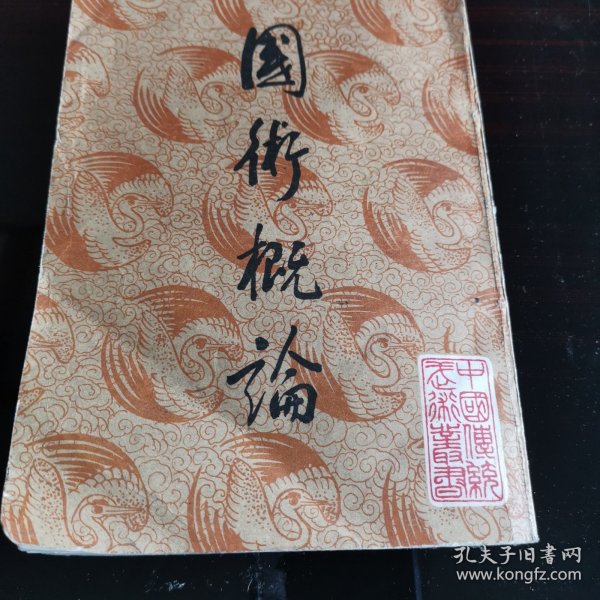 國術概論
中國傳統
武術叢書
孔夫子旧書网
www.kongfz.com